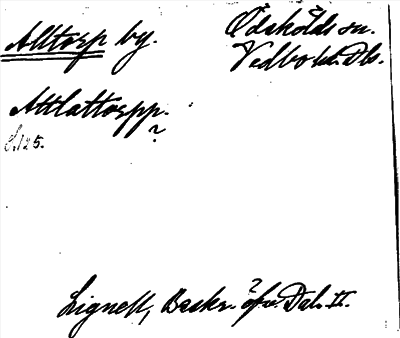 Alltorp by.
Ödskölds sn.
Vedbo hd. Dls.
Attlattorpp.
?
S. 125.
Lignell, Beskr. öfv. Dal. II.